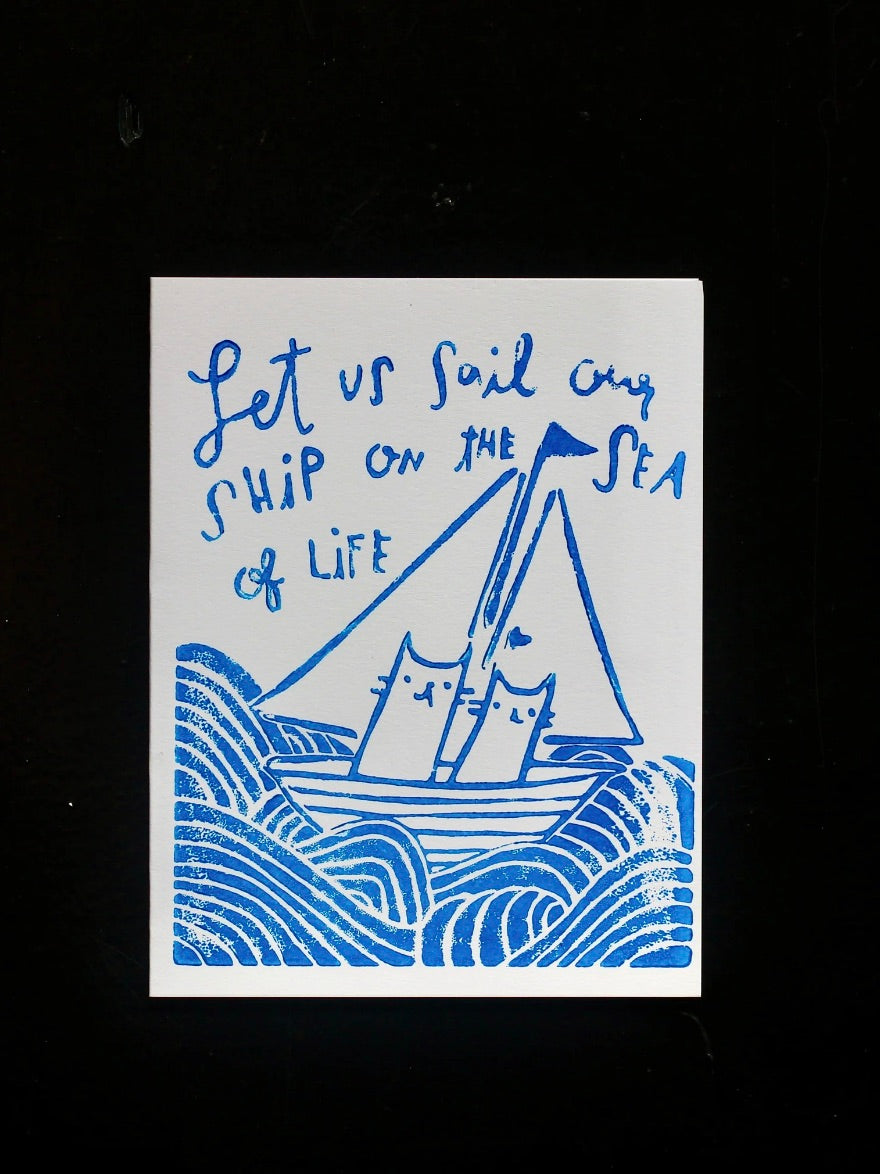 Let us sail our
SHiP ON THE SEA
of LiFE